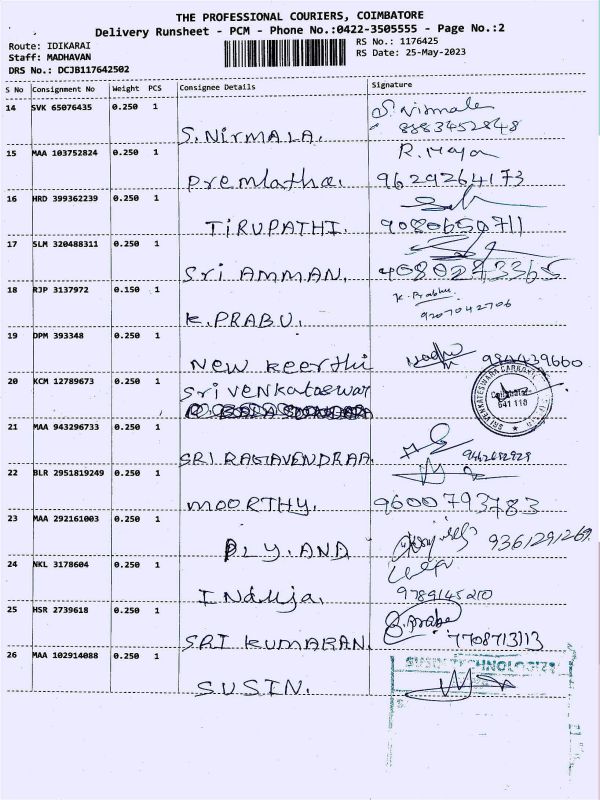 THE PROFESSIONAL COURIERS, COIMBATORE
Delivery Runsheet - PCM - Phone No.:0422-3505555 - Page No.:2
Route: IDIKARAI
RS No.: 1176425
Staff: MADHAVAN
RS Date: 25-May-2023
DRS No.: DCJB117642502
S No Consignment No Weight PCS Consignee Details Signature
14 SVK 65076435 0.250 1
S. Nirmala
S. NIRMALA. 8883452848
15 MAA 103752824 0.250 1
Premlatha. 9629264173
16 HRD 399362239 0.250 1
TIRUPATHI. 9080650711
17 SLM 320488311 0.250 1
Sri AMMAN.
18 RJP 3137972 0.150 1
K. Prabhu.
K. PRABU. 9207042706
19 DPM 393348 0.250 1
New Keerthi
20 KCM 12789673 0.250 1
Sri venkataswar
Coimbatore
641 110
21 MAA 943296733 0.250 1
SRI RAGAVENDRAA.
22 BLR 2951819249 0.250 1
MOORTHY. 9600793783
23 MAA 292161003 0.250 1
PLY. AND 9361291269
24 NKL 3178604 0.250 1
Induja. 9789145210
25 HSR 2739618 0.250 1
SRI KUMARAN. 7708713113
26 MAA 102914088 0.250 1
SUSIN TECHNOLOGIES
SUSIN.